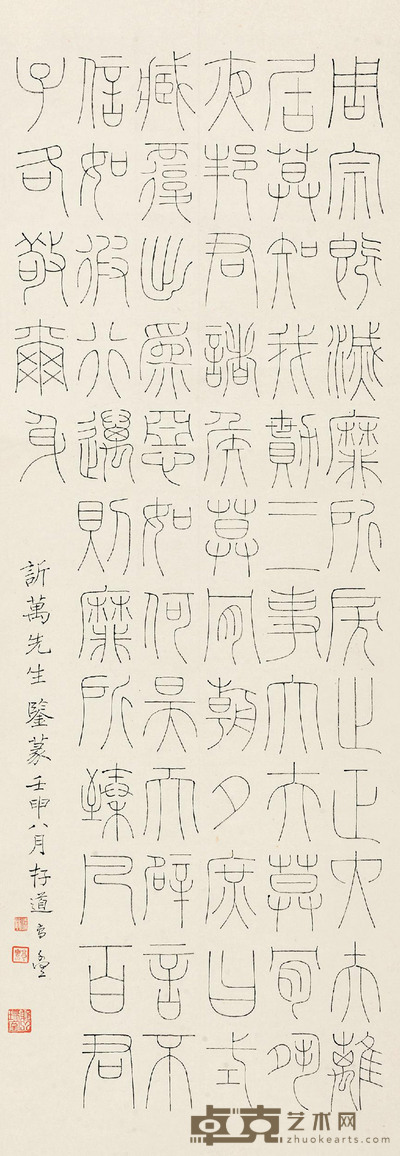 周宗既滅靡所戾止正大夫離
居莫知我勩三事大夫莫肯夙
夜邦君諸侯莫肯朝夕庶曰式
臧覆出爲惡如何昊天辟言不
信如彼行邁則靡所臻凡百君
子各敬爾身
訢萬先生鑒篆壬申八月存道
卓克艺术网
zhuokearts.com